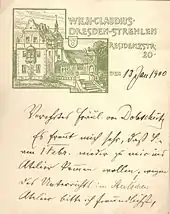 WILH·CLAUDIUS·
DRESDEN-STREHLEN
RESIDENZSTR.
20·
DEN 13 Jan 1900
Verehrtes Fräul. von
Es freut mich sehr, daß Sie
am 1 Febr. wieder zu mir ins
Atelier kommen wollen, wegen
des Unterrichts im
Atelier bitte ich freundlichst,